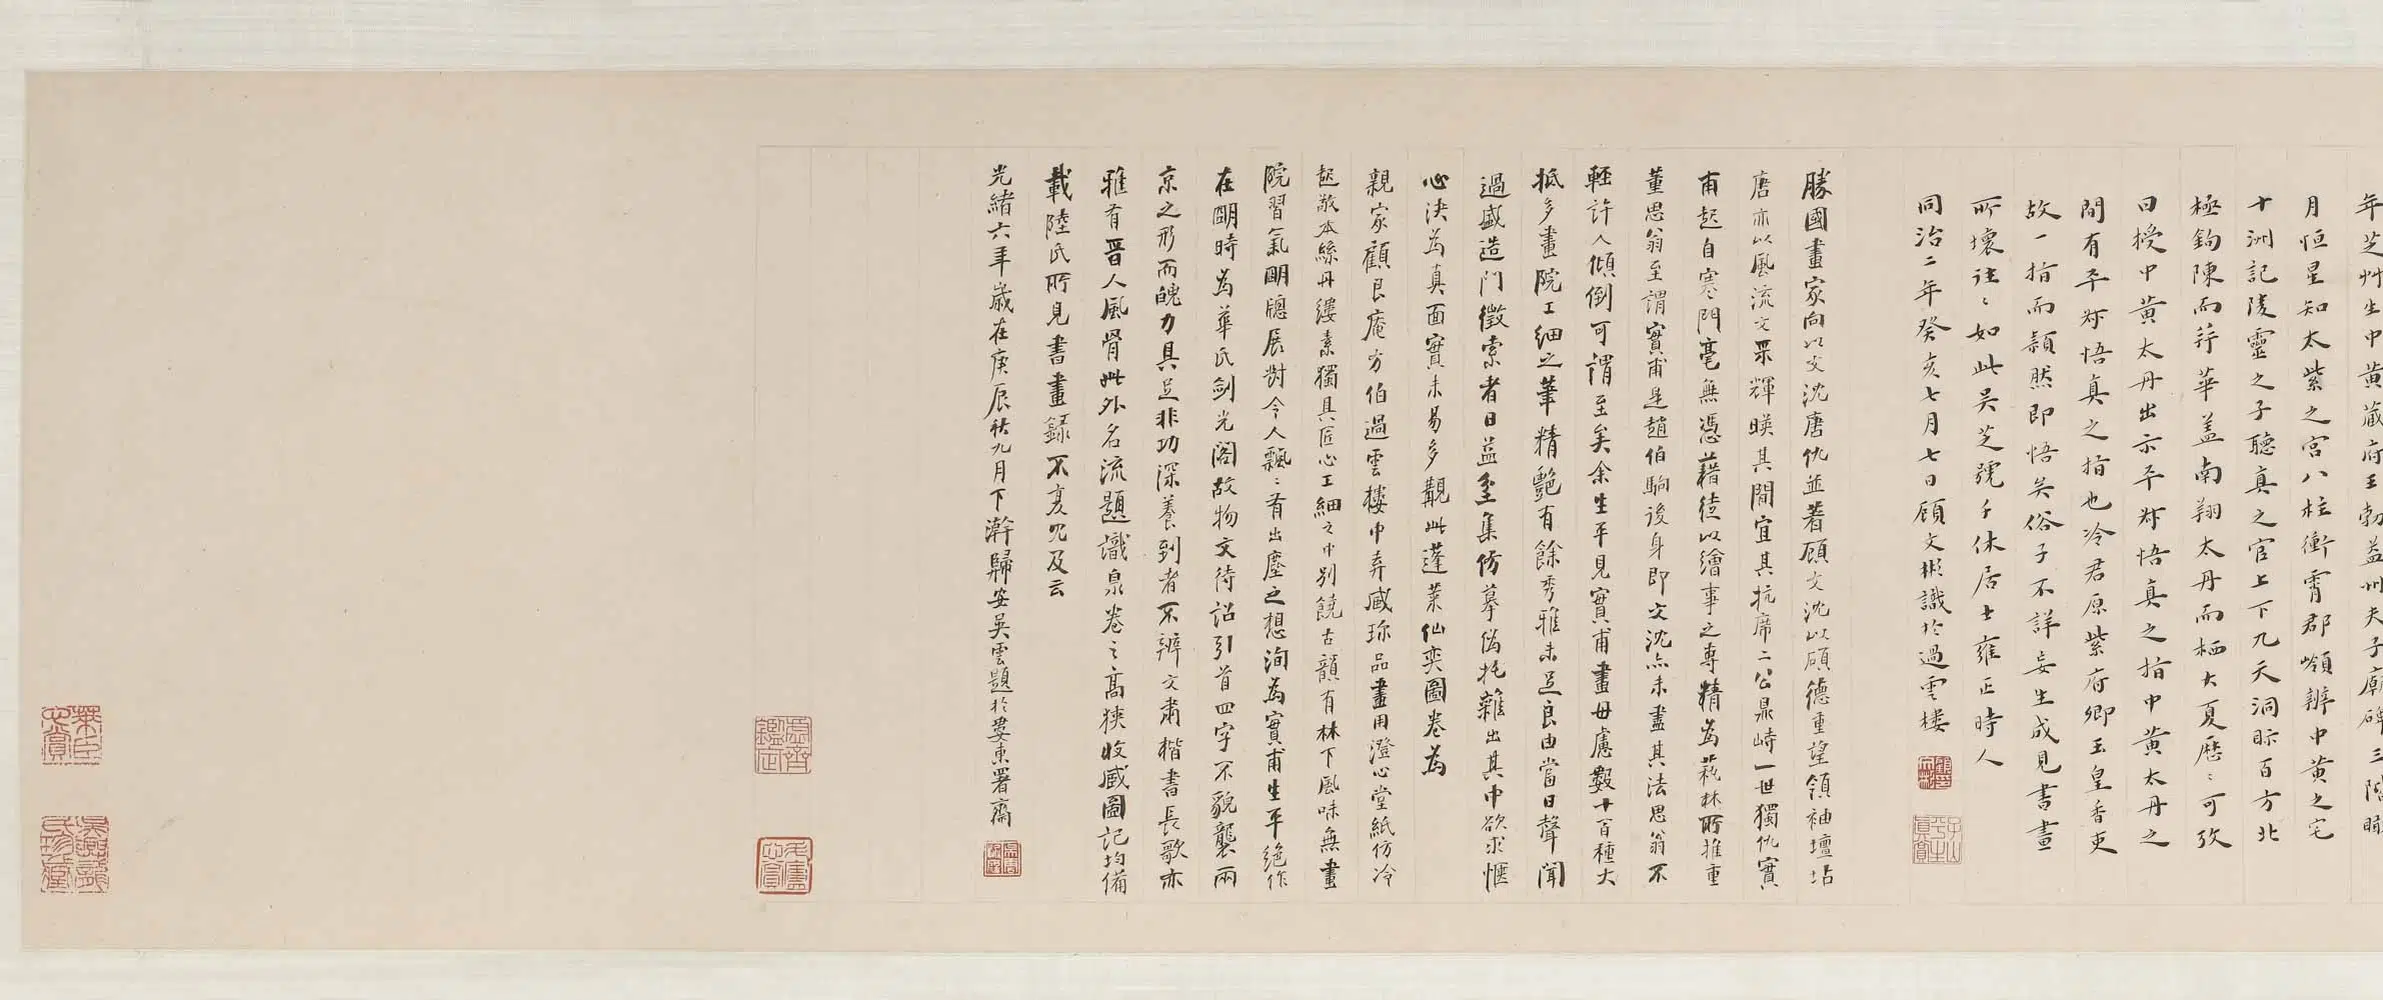 年芝艸生中黄藏府王勃益州夫子廟碑三階
月恒星知太紫之宮八柱衝霄郡嶺辨中黄之宅
十洲記陵靈之子聽真之官上下九天洞眎百方北
極鈎陳而并華盖南翔太丹而栖大夏歷〻可攷
日授中黄太丹出示平叔悟真之指中黄太丹之
間有平叔悟真之指也冷君原紫府卿玉皇香吏
故一指而頴然即悟矣俗子不詳妄生成見書畫
所壞往〻如此吴芝號子休居士雍正時人
同治二年癸亥七月七日顧文彬識於過雲樓
勝國畫家向以文沈唐仇並著顧文沈以碩德重望領袖壇坫
唐亦以風流文采輝暎其間宜其抗席二公鼎峙一世獨仇實
甫起自寒門毫無憑藉徒以繪事之專精為萟林所推重
董思翁至謂實甫是趙伯駒後身即文沈亦未盡其法思翁不
輕許人傾倒可謂至矣余生平見實甫畫毋慮數十百種大
抵多畫院工細之筆精艷有餘秀雅未足良由當日聲聞
過盛造門徵索者日益至集仿摹偽托雜出其中欲求愜
心決為真面實未易多覯此蓬萊仙奕圖卷為
親家顧艮庵方伯過雲樓中弆藏珎品畫用澄心堂紙仿冷
起敬本絲丹縷素獨具匠心工細之中别饒古韻有林下風味無畫
院習氣明牕展對令人飄〻有出塵之想洵為實甫生平絶作
在明時為華氏劍光閣故物文待詔引首四字不貌襲兩
京之形而魄力具足非功深養到者不辨文肅楷書長歌亦
雅有晉人風骨此外名流題識泉卷之高狹收藏圖記均備
載陸氏所見書畫錄不复㒭及云
光緒六年歲在庚辰秋九月下澣歸安吴雲題於婁東署齋